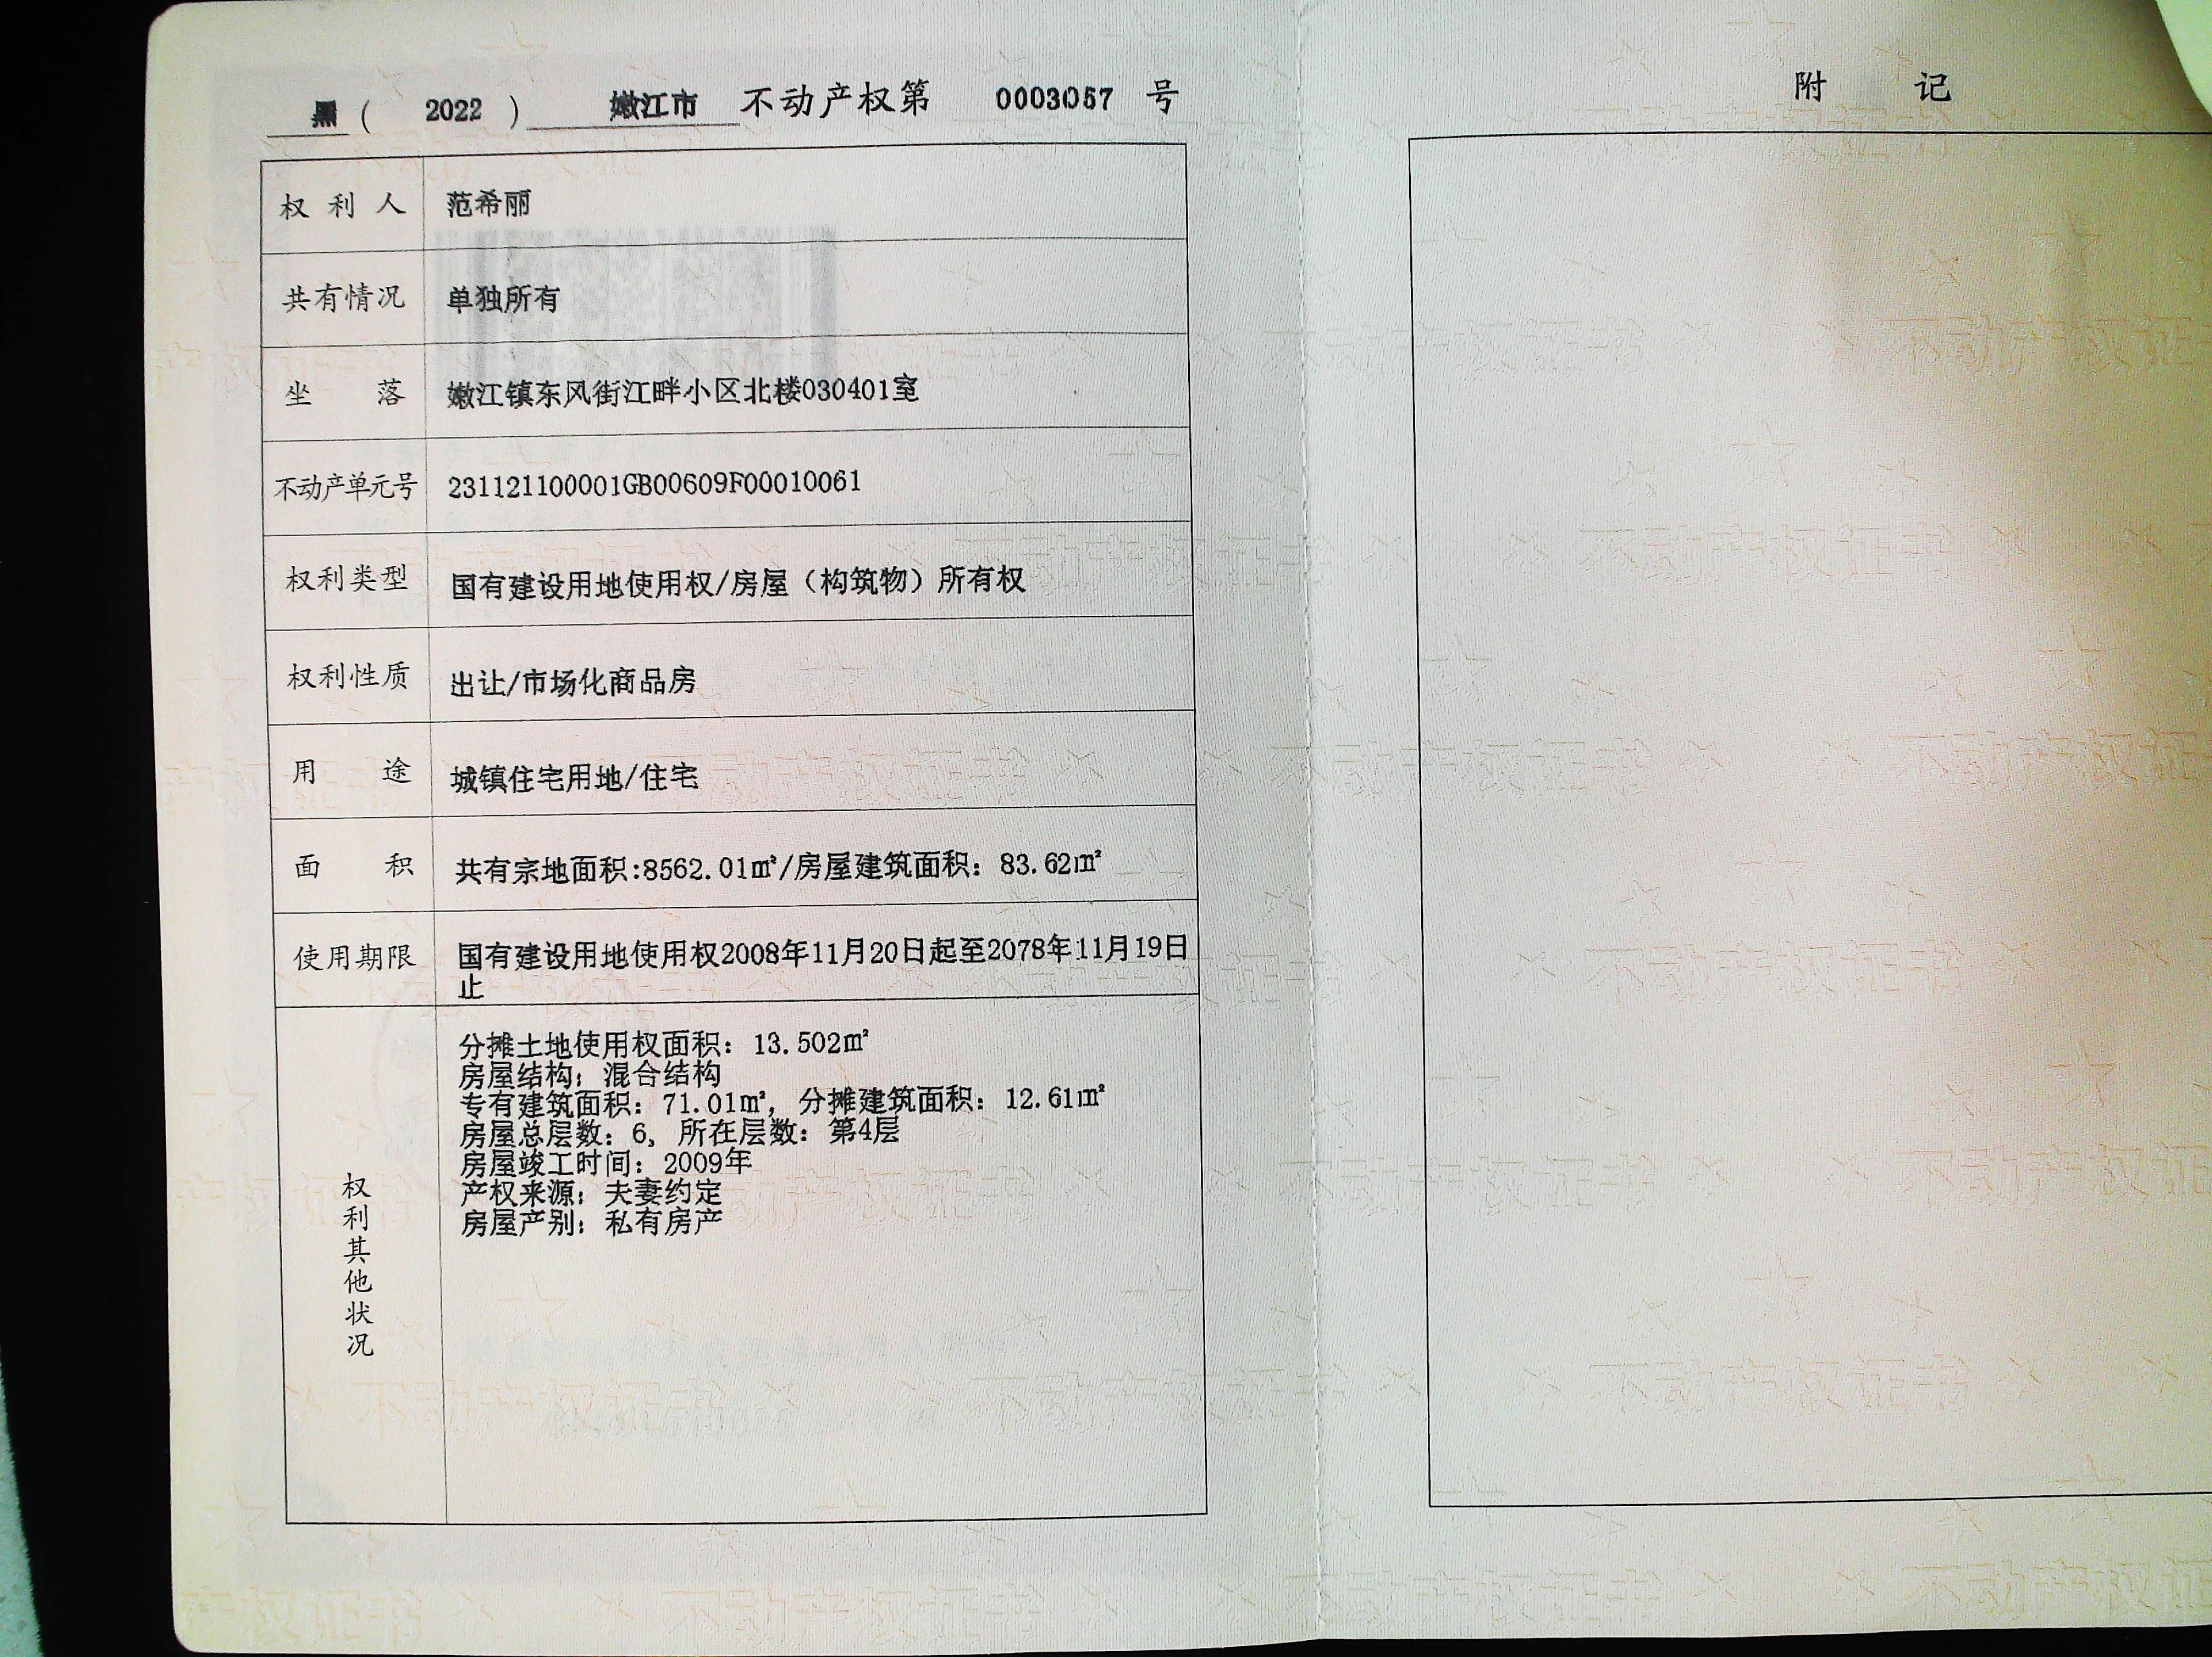 黑 ( 2022 ) 嫩江市 不动产权第 0003057 号
权利人 范希丽
共有情况 单独所有
坐落 嫩江镇东风街江畔小区北楼030401室
不动产单元号 231121100001GB00609F00010061
权利类型 国有建设用地使用权/房屋（构筑物）所有权
权利性质 出让/市场化商品房
用途 城镇住宅用地/住宅
面积 共有宗地面积:8562.01㎡/房屋建筑面积：83.62㎡
使用期限 国有建设用地使用权2008年11月20日起至2078年11月19日
止
权利其他状况
分摊土地使用权面积：13.502㎡
房屋结构：混合结构
专有建筑面积：71.01㎡，分摊建筑面积：12.61㎡
房屋总层数：6，所在层数：第4层
房屋竣工时间：2009年
产权来源：夫妻约定
房屋产别：私有房产
附记